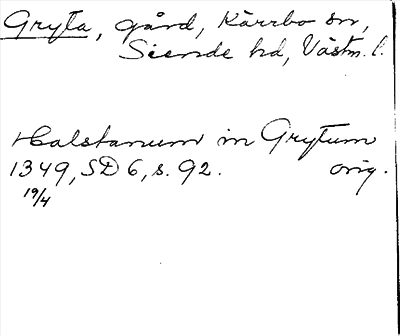 Gryta, gård, Kärrbo sn,
Siende hd, Västm. l.
Halstanum in Grytum
1349, SD 6, s. 92. orig.
19/4